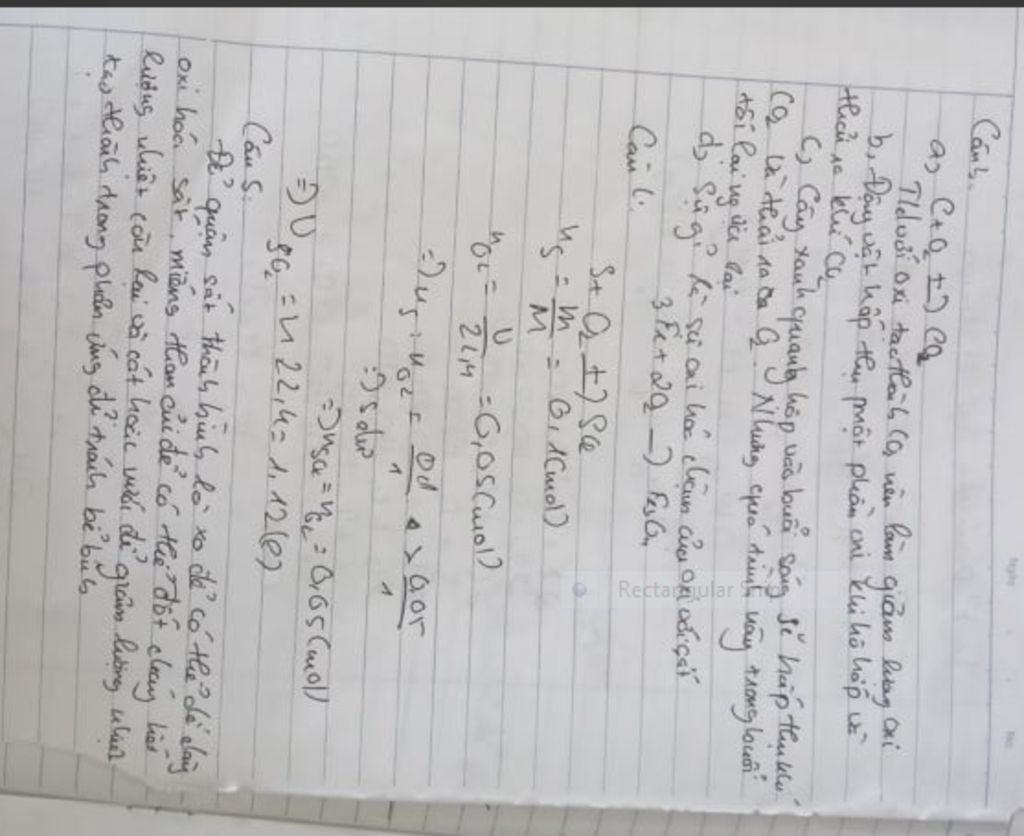 Câu 3.
a, C+O2 t) CO2
Than với oxi tạo thành CO2 nên làm giảm lượng oxi
b, Động vật hấp thụ một phần oxi khi hô hấp và
thải ra khí CO2
c, Cây xanh quang hợp vào buổi sáng sẽ hấp thụ khí
CO2 và thải ra O2. Nhưng quá trình này trong buổi
tối lại ngược lại
d, Sự gỉ là sự oxi hóa chậm của oxi với sắt
3Fe+2O2 -) Fe3O4
Câu 4.
S+O2 t) SO2
nS = m/M = 0,1(mol)
nO2 = V/22,4 = 0,05(mol)
=) nS : nO2 = 0,1/1 > 0,05/1
=) S dư
=) nSO2 = nO2 = 0,05(mol)
=) V SO2 = n 22,4 = 1,12(l)
Câu 5.
Để quấn sắt thành hình lò xo để có thể dễ dàng
oxi hóa sắt, miếng than củi để có thể đốt cháy
lượng nhiệt còn lại và cát hoặc nước để giảm lượng nhiệt
tạo thành trong phản ứng để tránh bể bình
Rectangular S